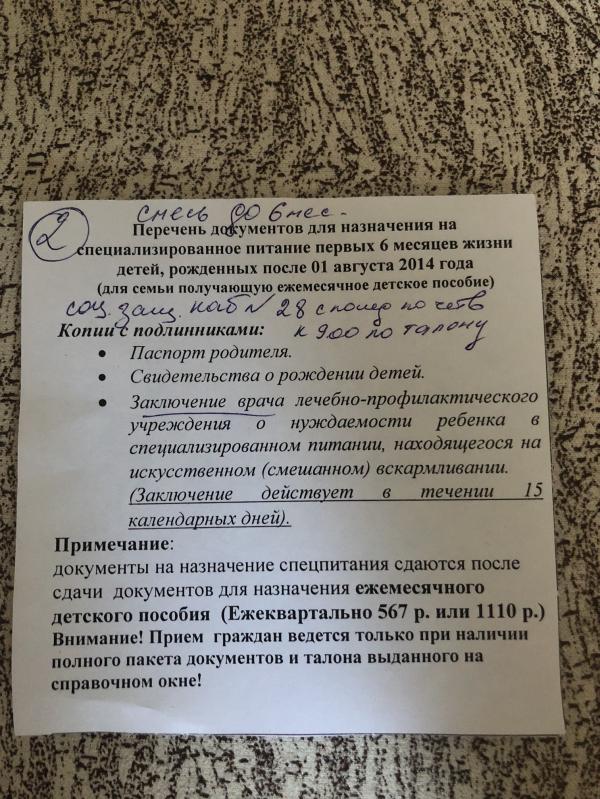 смесь до 6 мес.
2
Перечень документов для назначения на
специализированное питание первых 6 месяцев жизни
детей, рожденных после 01 августа 2014 года
(для семьи получающую ежемесячное детское пособие)
соц. защ. каб № 28 с понед по четв
Копии с подлинниками: к 9 00 по талону
• Паспорт родителя.
• Свидетельства о рождении детей.
• Заключение врача лечебно-профилактического
учреждения о нуждаемости ребенка в
специализированном питании, находящегося на
искусственном (смешанном) вскармливании.
(Заключение действует в течении 15
календарных дней).
Примечание:
документы на назначение спецпитания сдаются после
сдачи документов для назначения ежемесячного
детского пособия (Ежеквартально 567 р. или 1110 р.)
Внимание! Прием граждан ведется только при наличии
полного пакета документов и талона выданного на
справочном окне!